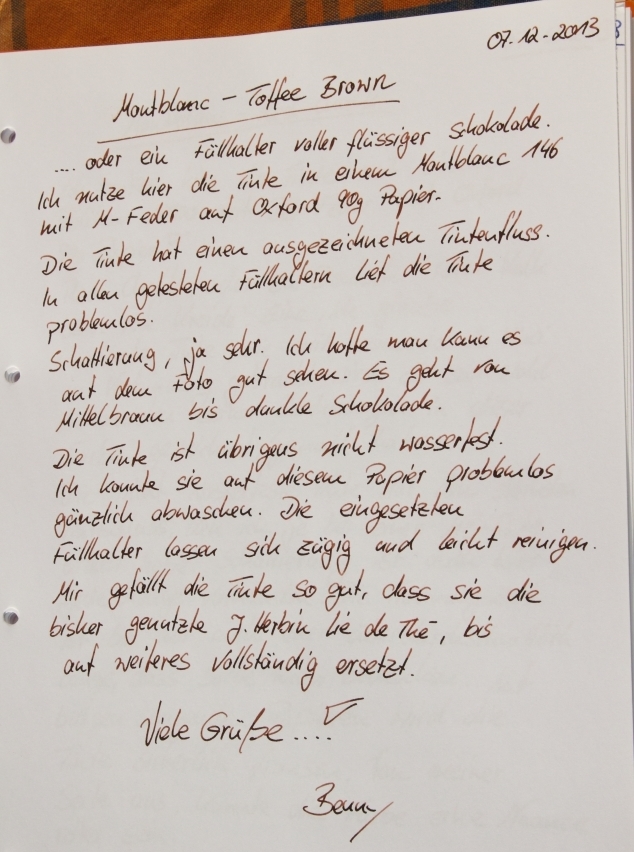 07-12-2013
Montblanc - Toffee Brown
.... oder ein Füllhalter voller flüssiger Schokolade.
Ich nutze hier die Tinte in einem Montblanc 146
mit M-Feder auf Oxford 90g Papier.
Die Tinte hat einen ausgezeichneten Tintenfluss.
In allen getesteten Füllhaltern lief die Tinte
problemlos.
Schattierung, ja sehr. Ich hoffe man kann es
auf dem Foto gut sehen. Es geht von
Mittelbraun bis dunkle Schokolade.
Die Tinte ist übrigens nicht wasserfest.
Ich konnte sie auf diesem Papier problemlos
gänzlich abwaschen. Die eingesetzten
Füllhalter lassen sich zügig und leicht reinigen.
Mir gefällt die Tinte so gut, dass sie die
bisher genutzte J. Herbin Lie de Thé, bis
auf weiteres vollständig ersetzt.
Viele Grüße ....